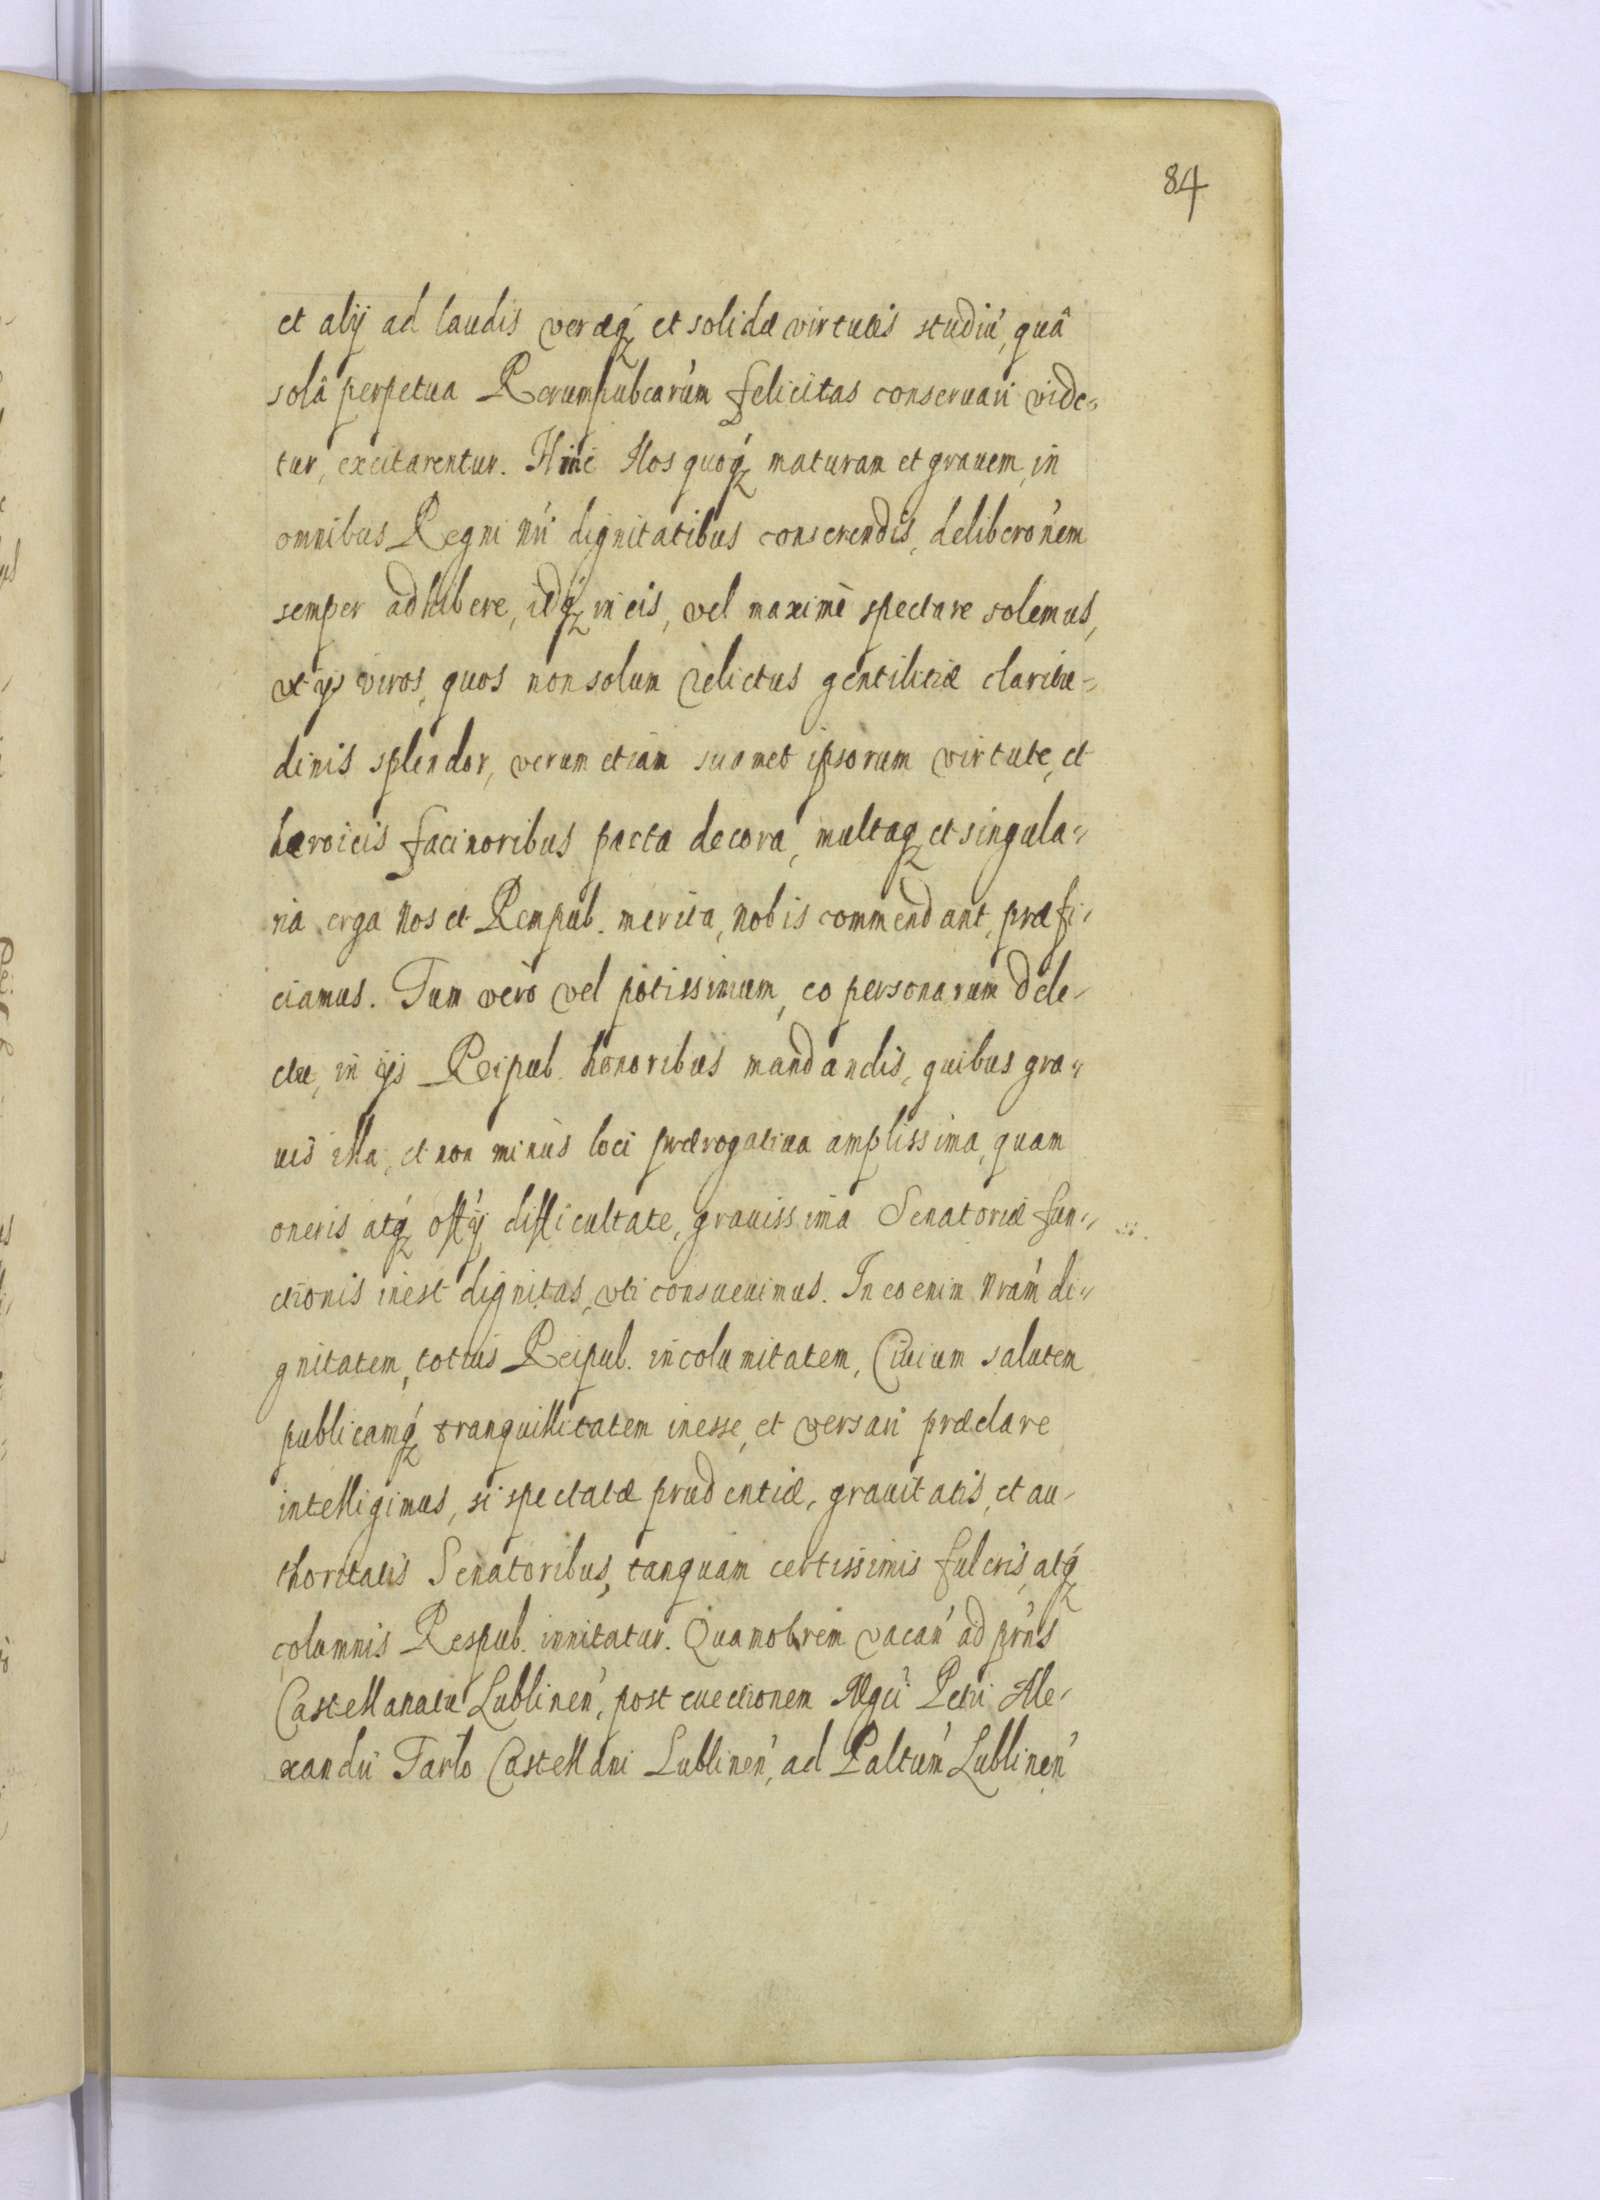 84
et alÿ ad laudis veræq́ꝫ et solidæ virtutis studiú, quâ
solâ perpetua Rerumpubcarúm felicitas conseruari vide-
tur, excitarentur. Hinc Nos quoq́ꝫ maturam et grauem, in
omnibus Regni nrí dignitatibus conferendis, deliberońem
semper adhibere, idq́ꝫ in eis, vel maximè spectare solemus,
vt ÿs viros, quos non solum relictus gentilitiæ claritu-
dinis splendor, verum etiam suamet ipsorum virtute, et
hæroicis facinoribus parta decora, multaqꝫ et singula-
ria erga nos et Rempub. merita, nobis commendant, præfi-
ciamus. Tum vero vel potissimum, eo personarum dele-
ctu, in ÿs Reipub. honoribus mandandis, quibus gra-
uis illa, et non minùs loci prærogatiua amplissima, quam
oneris atq́ꝫ offÿ difficultate, grauissima Senatoriæ fun-
ctionis inest dignitas, vti consueuimus. In eo enim nrám di-
gnitatem, totius Reipub. incolumitatem, Ciuium salutem
publicamq́ꝫ tranquillitatem inesse, et versari præclare
intelligimus, si spectatæ prudentiæ, grauitatis, et au-
thoritatis Senatoribus, tanquam certissimis fulcris, atq́ꝫ
columnis Respub. innitatur. Quamobrem vacań ad prńs
Castellanatu Lublineń, post euectionem Mgci Petri Ale-
xandri Tarlo Castellani Lublineń, ad Paltum Lublineń